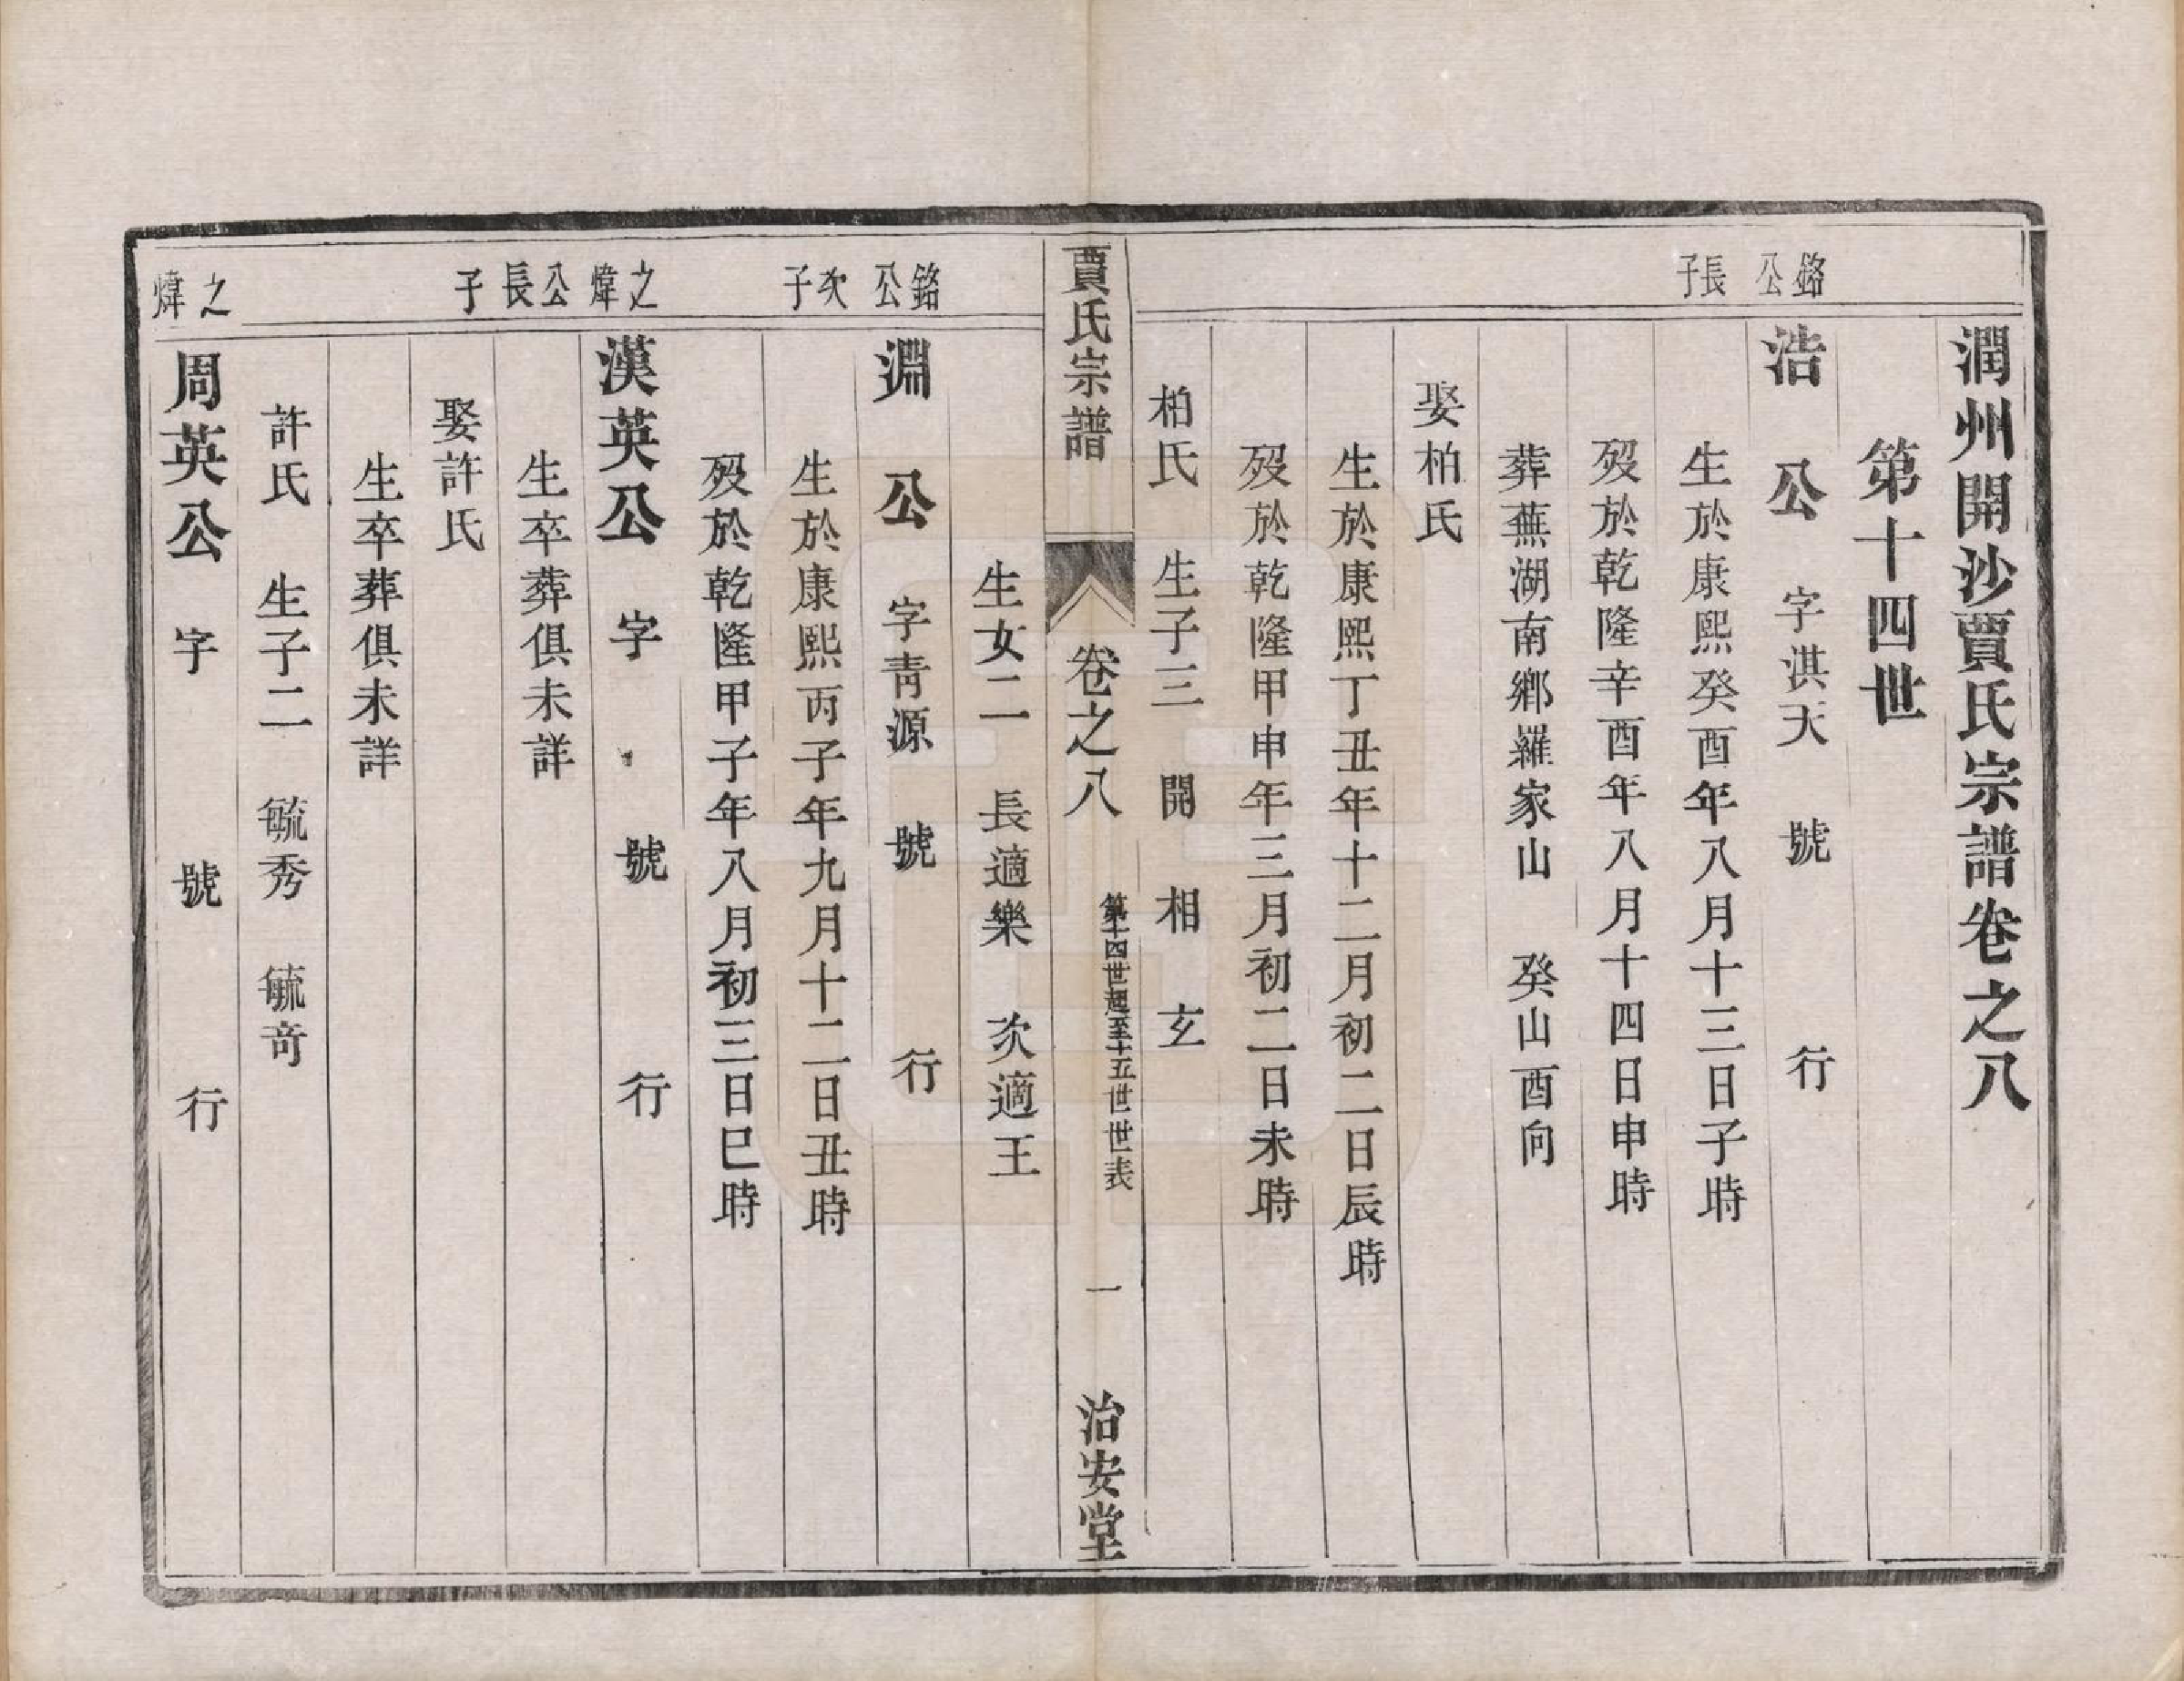 潤州開沙賈氏宗譜卷之八
第十四世
銘公長子
浩公 字淇天 號 行
生於康熙癸酉年八月十三日子時
歿於乾隆辛酉年八月十四日申時
葬蕪湖南鄉羅家山 癸山酉向
娶柏氏
生於康熙丁丑年十二月初二日辰時
歿於乾隆甲申年三月初二日未時
柏氏 生子三 開 相 玄
賈氏宗譜 卷之八 第十四世起至十五世世表 一 治安堂
生女二 長適樂 次適王
銘公次子
淵公 字青源 號 行
生於康熙丙子年九月十二日丑時
歿於乾隆甲子年八月初三日巳時
之煒公長子
漢英公 字 號 行
生卒葬俱未詳
娶許氏
生卒葬俱未詳
許氏 生子二 毓秀 毓奇
之煒
周英公 字 號 行